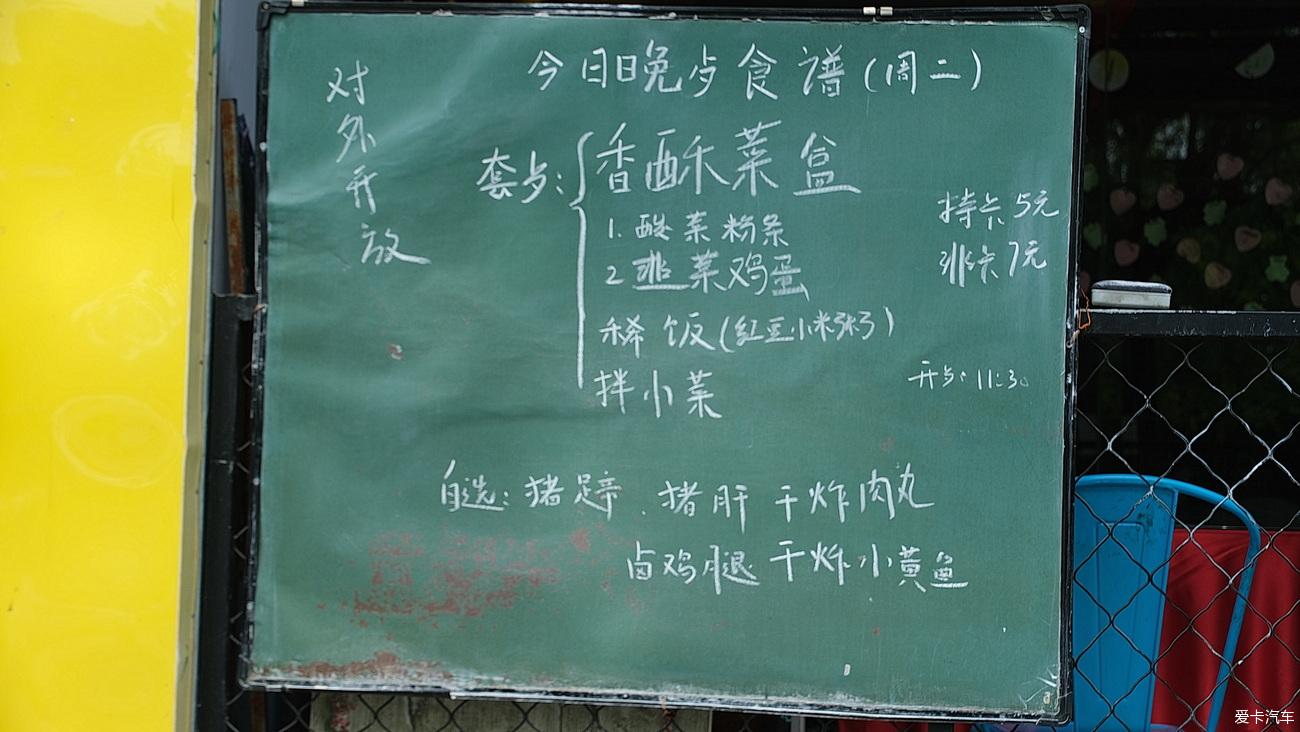 对外开放
今日晚歺食谱（周二）
套歺：香酥菜盒
1. 酸菜粉条
2. 韭菜鸡蛋
稀饭（红豆小米粥）
拌小菜
持卡5元
非卡7元
开歺：11:30
自选：猪蹄、猪肝 干炸肉丸
卤鸡腿 干炸小黄鱼
爱卡汽车